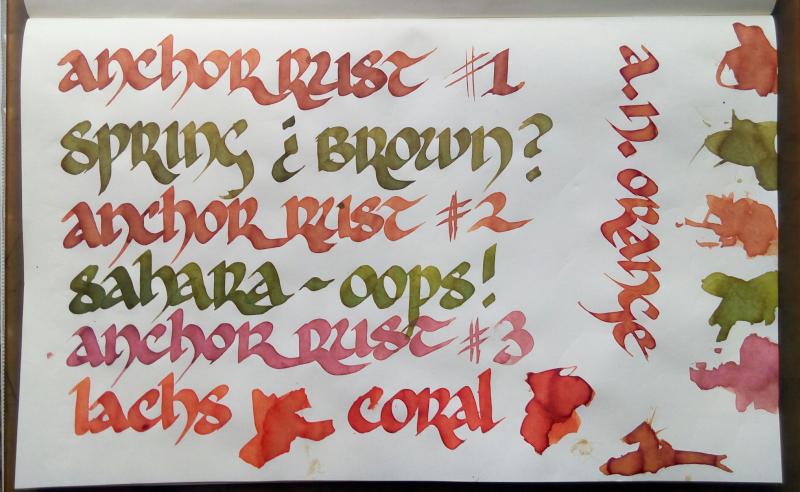 anchor rust #1
spring ¿ brown?
anchor rust #2
sahara ~ oops!
anchor rust #3
lachs coral
a.n. orange